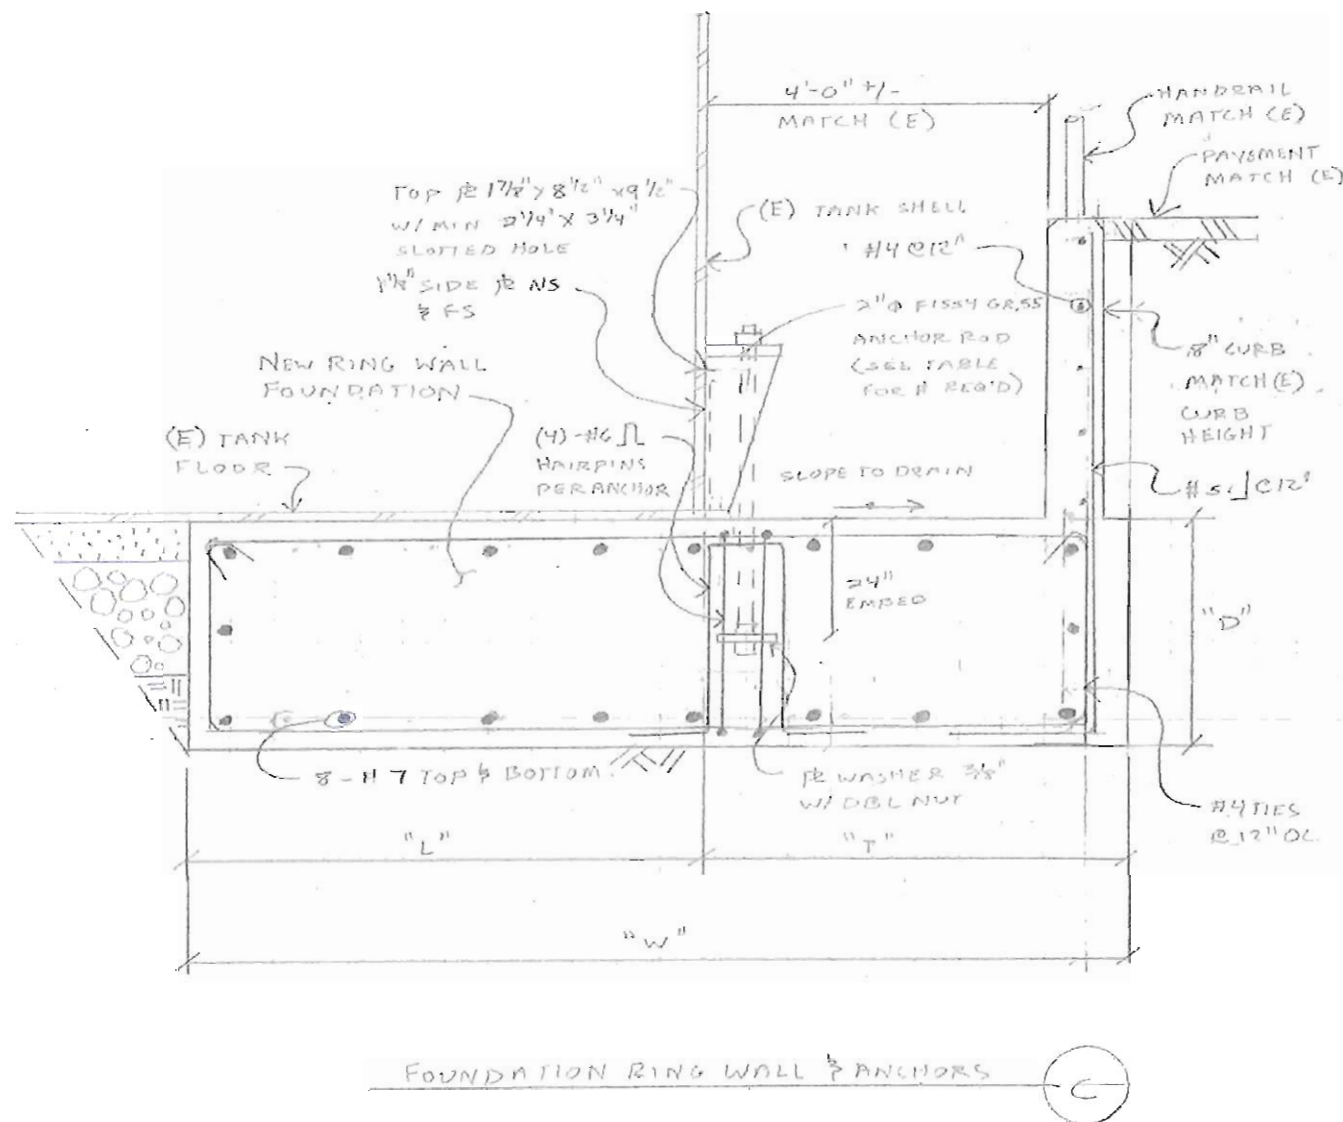 4'-0" +/-
MATCH (E)
HANDRAIL
MATCH (E)
PAVEMENT
MATCH (E)
TOP ⅊ 1 7/8" x 8 1/2" x 9 1/2"
W/ MIN 2 1/4" X 3 1/4"
SLOTTED HOLE
(E) TANK SHELL
#4 @ 12"
SIDE ⅊ NS
& FS
2" Φ F1554 GR.55
ANCHOR ROD
(SEE TABLE
FOR # REQ'D)
8" CURB
MATCH (E)
CURB
HEIGHT
NEW RING WALL
FOUNDATION
(E) TANK
FLOOR
(4) - #6
HAIRPINS
PER ANCHOR
SLOPE TO DRAIN
#5 @ 12"
24"
EMBED
"D"
8 - #7 TOP & BOTTOM
⅊ WASHER 3/8"
W/ DBL NUT
#4 TIES
@ 12" OC.
"L"
"T"
"W"
FOUNDATION RING WALL & ANCHORS
C